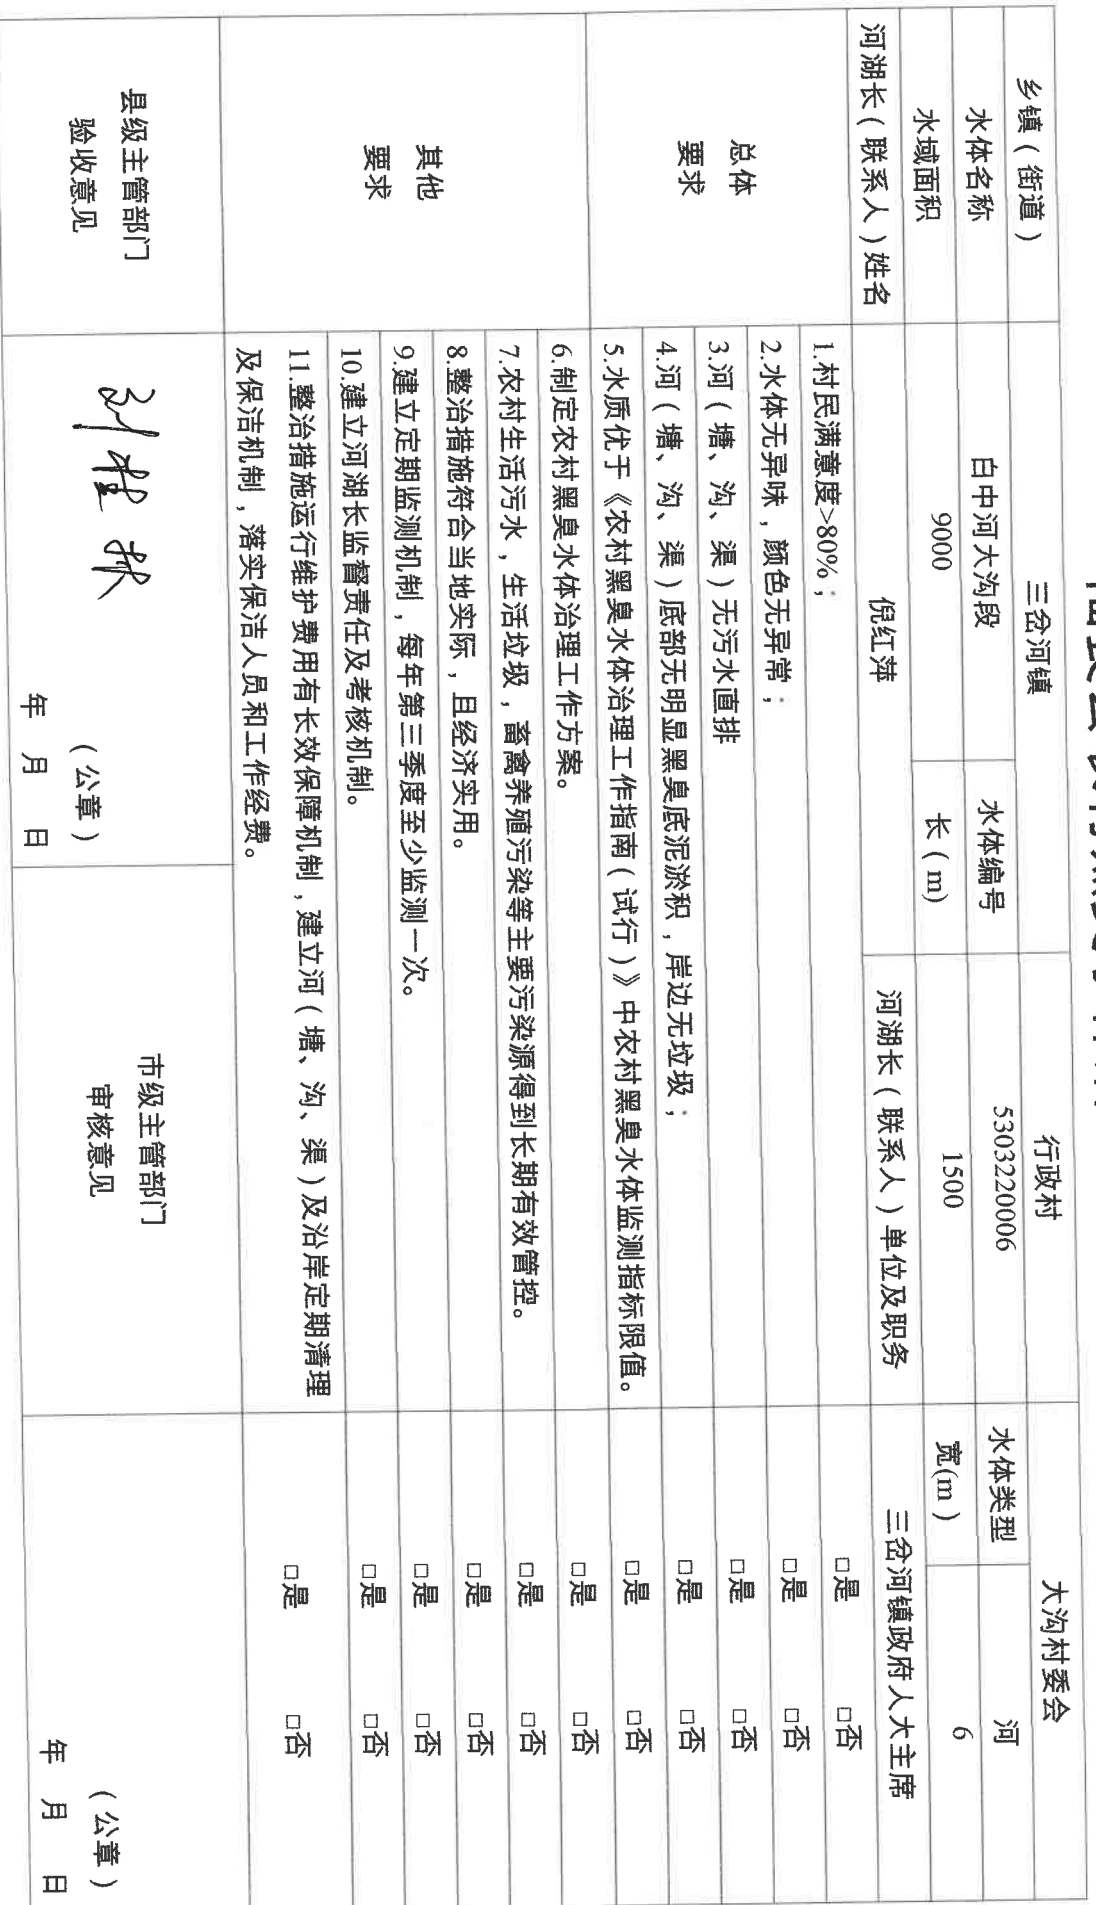 乡镇（街道） 三岔河镇 行政村 大沟村委会
水体名称 白中河大沟段 水体编号 5303220006 水体类型 河
水域面积 9000 长（m） 1500 宽(m） 6
河湖长（联系人）姓名 倪红萍 河湖长（联系人）单位及职务 三岔河镇政府人大主席
总体
要求
1.村民满意度>80%； □是 □否
2.水体无异味，颜色无异常； □是 □否
3.河（塘、沟、渠）无污水直排 □是 □否
4.河（塘、沟、渠）底部无明显黑臭底泥淤积，岸边无垃圾； □是 □否
5.水质优于《农村黑臭水体治理工作指南（试行）》中农村黑臭水体监测指标限值。 □是 □否
其他
要求
6.制定农村黑臭水体治理工作方案。 □是 □否
7.农村生活污水，生活垃圾，畜禽养殖污染等主要污染源得到长期有效管控。 □是 □否
8.整治措施符合当地实际，且经济实用。 □是 □否
9.建立定期监测机制，每年第三季度至少监测一次。 □是 □否
10.建立河湖长监督责任及考核机制。 □是 □否
11.整治措施运行维护费用有长效保障机制，建立河（塘、沟、渠）及沿岸定期清理 □是 □否
及保洁机制，落实保洁人员和工作经费。
县级主管部门
验收意见
（公章）
年 月 日
市级主管部门
审核意见
（公章）
年 月 日